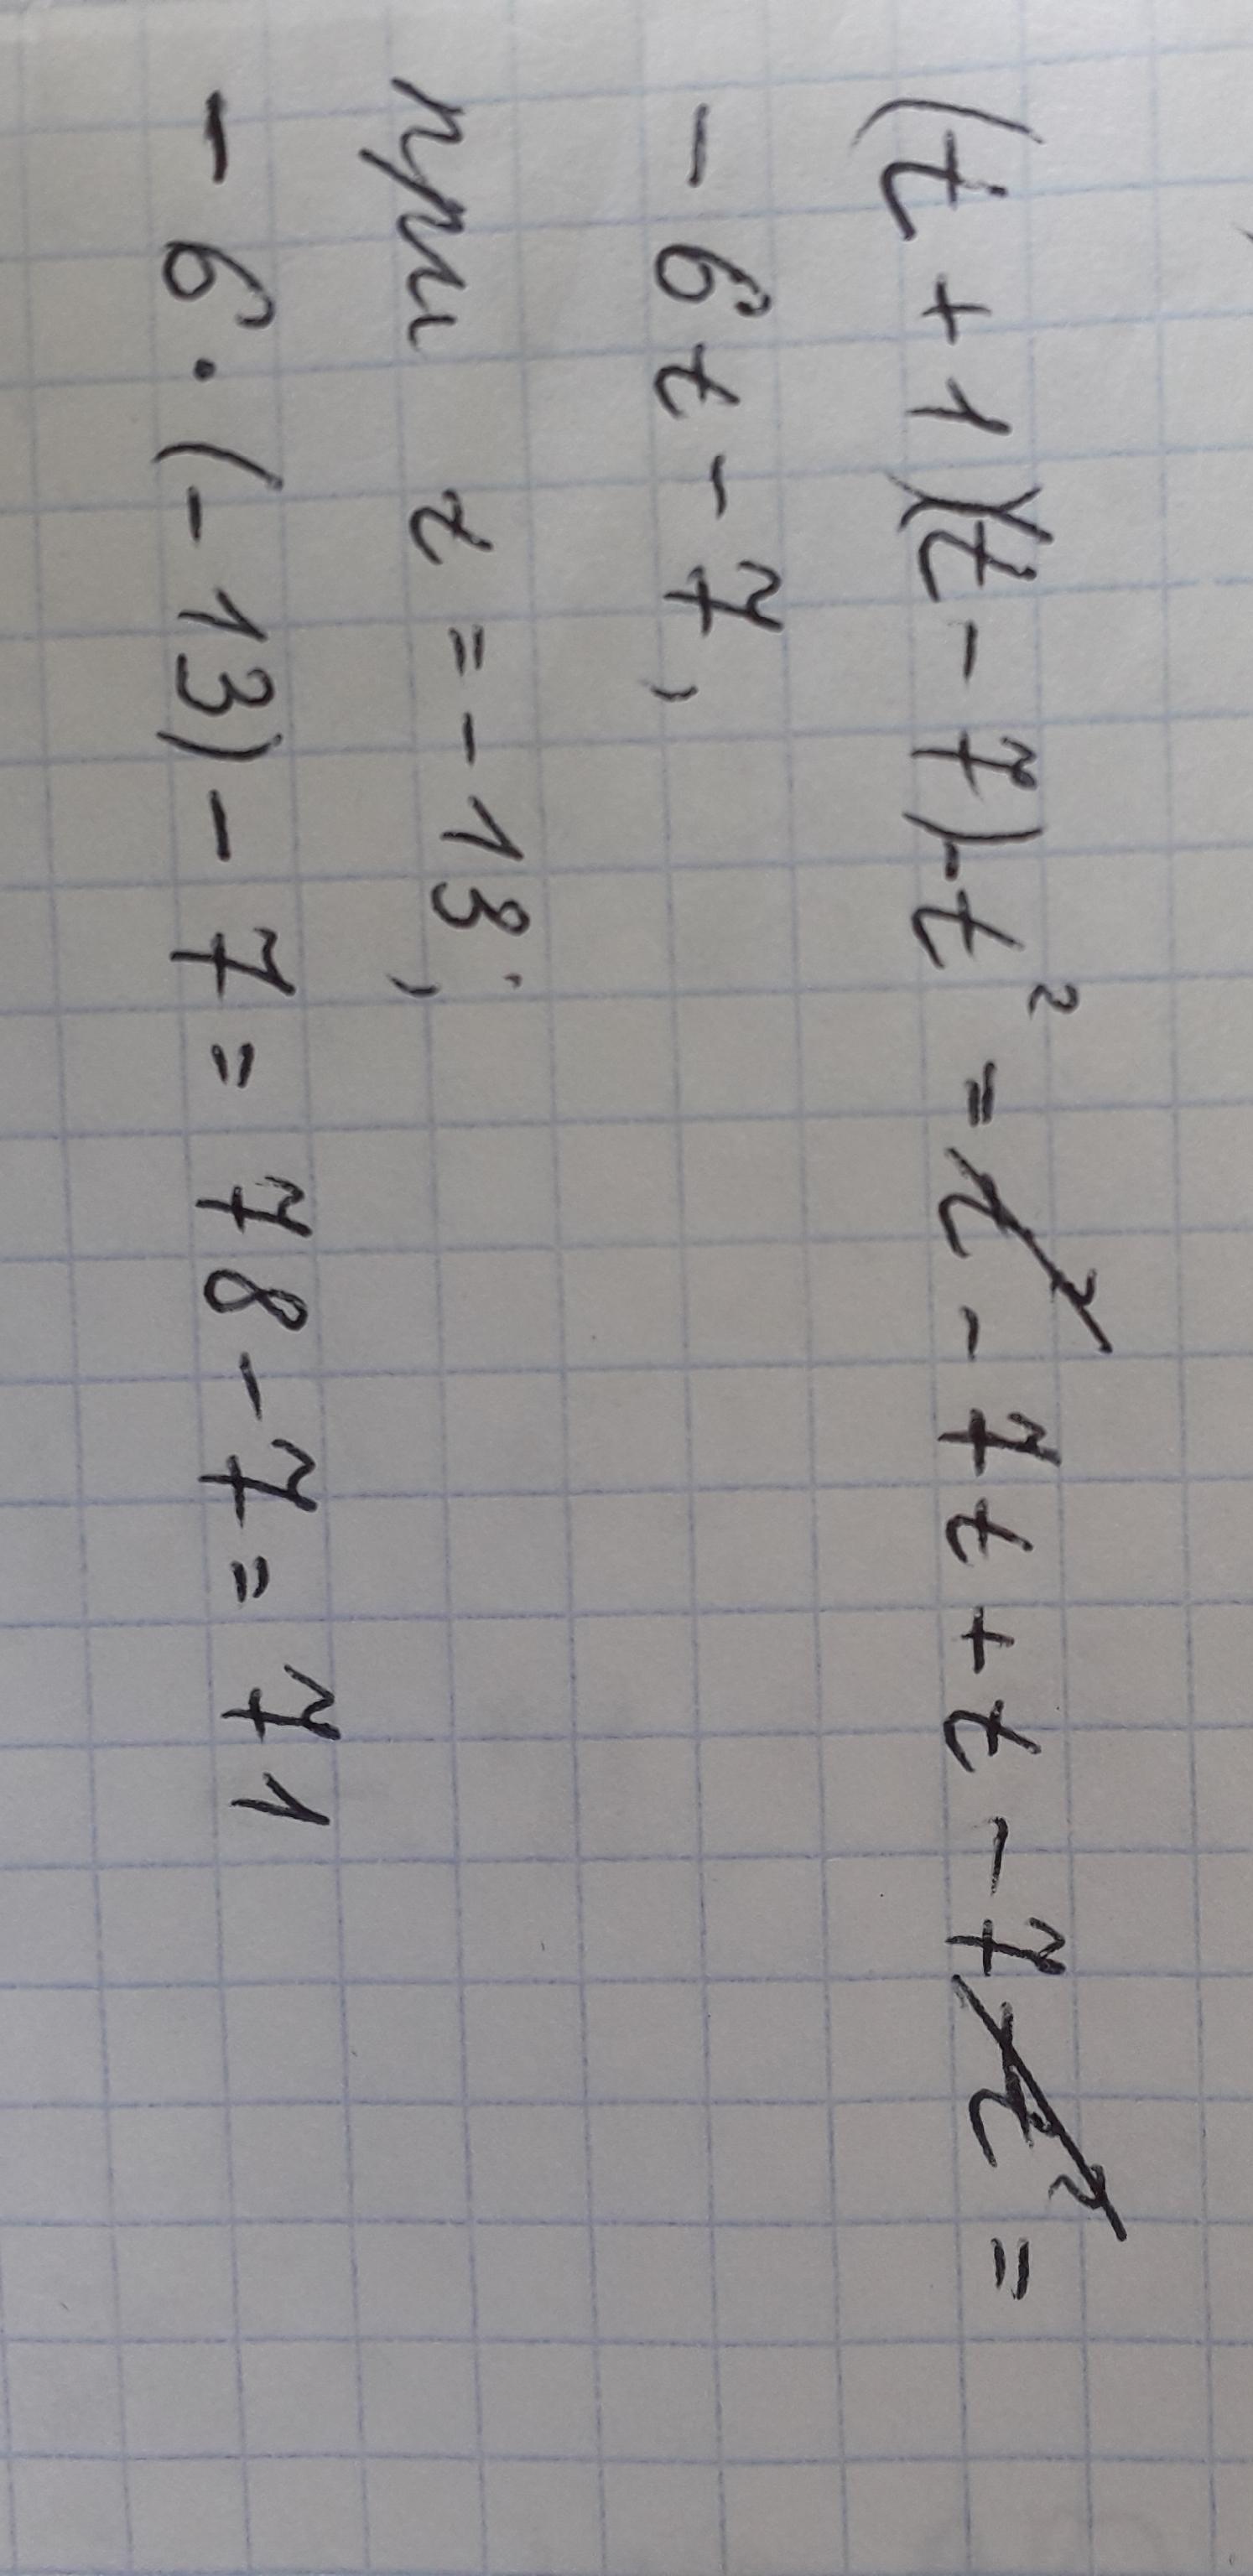 (t + 1)(t - 7) - t² = t² - 7t + t - 7 - t² =
- 6t - 7,
при t = - 13;
- 6 · (- 13) - 7 = 78 - 7 = 71